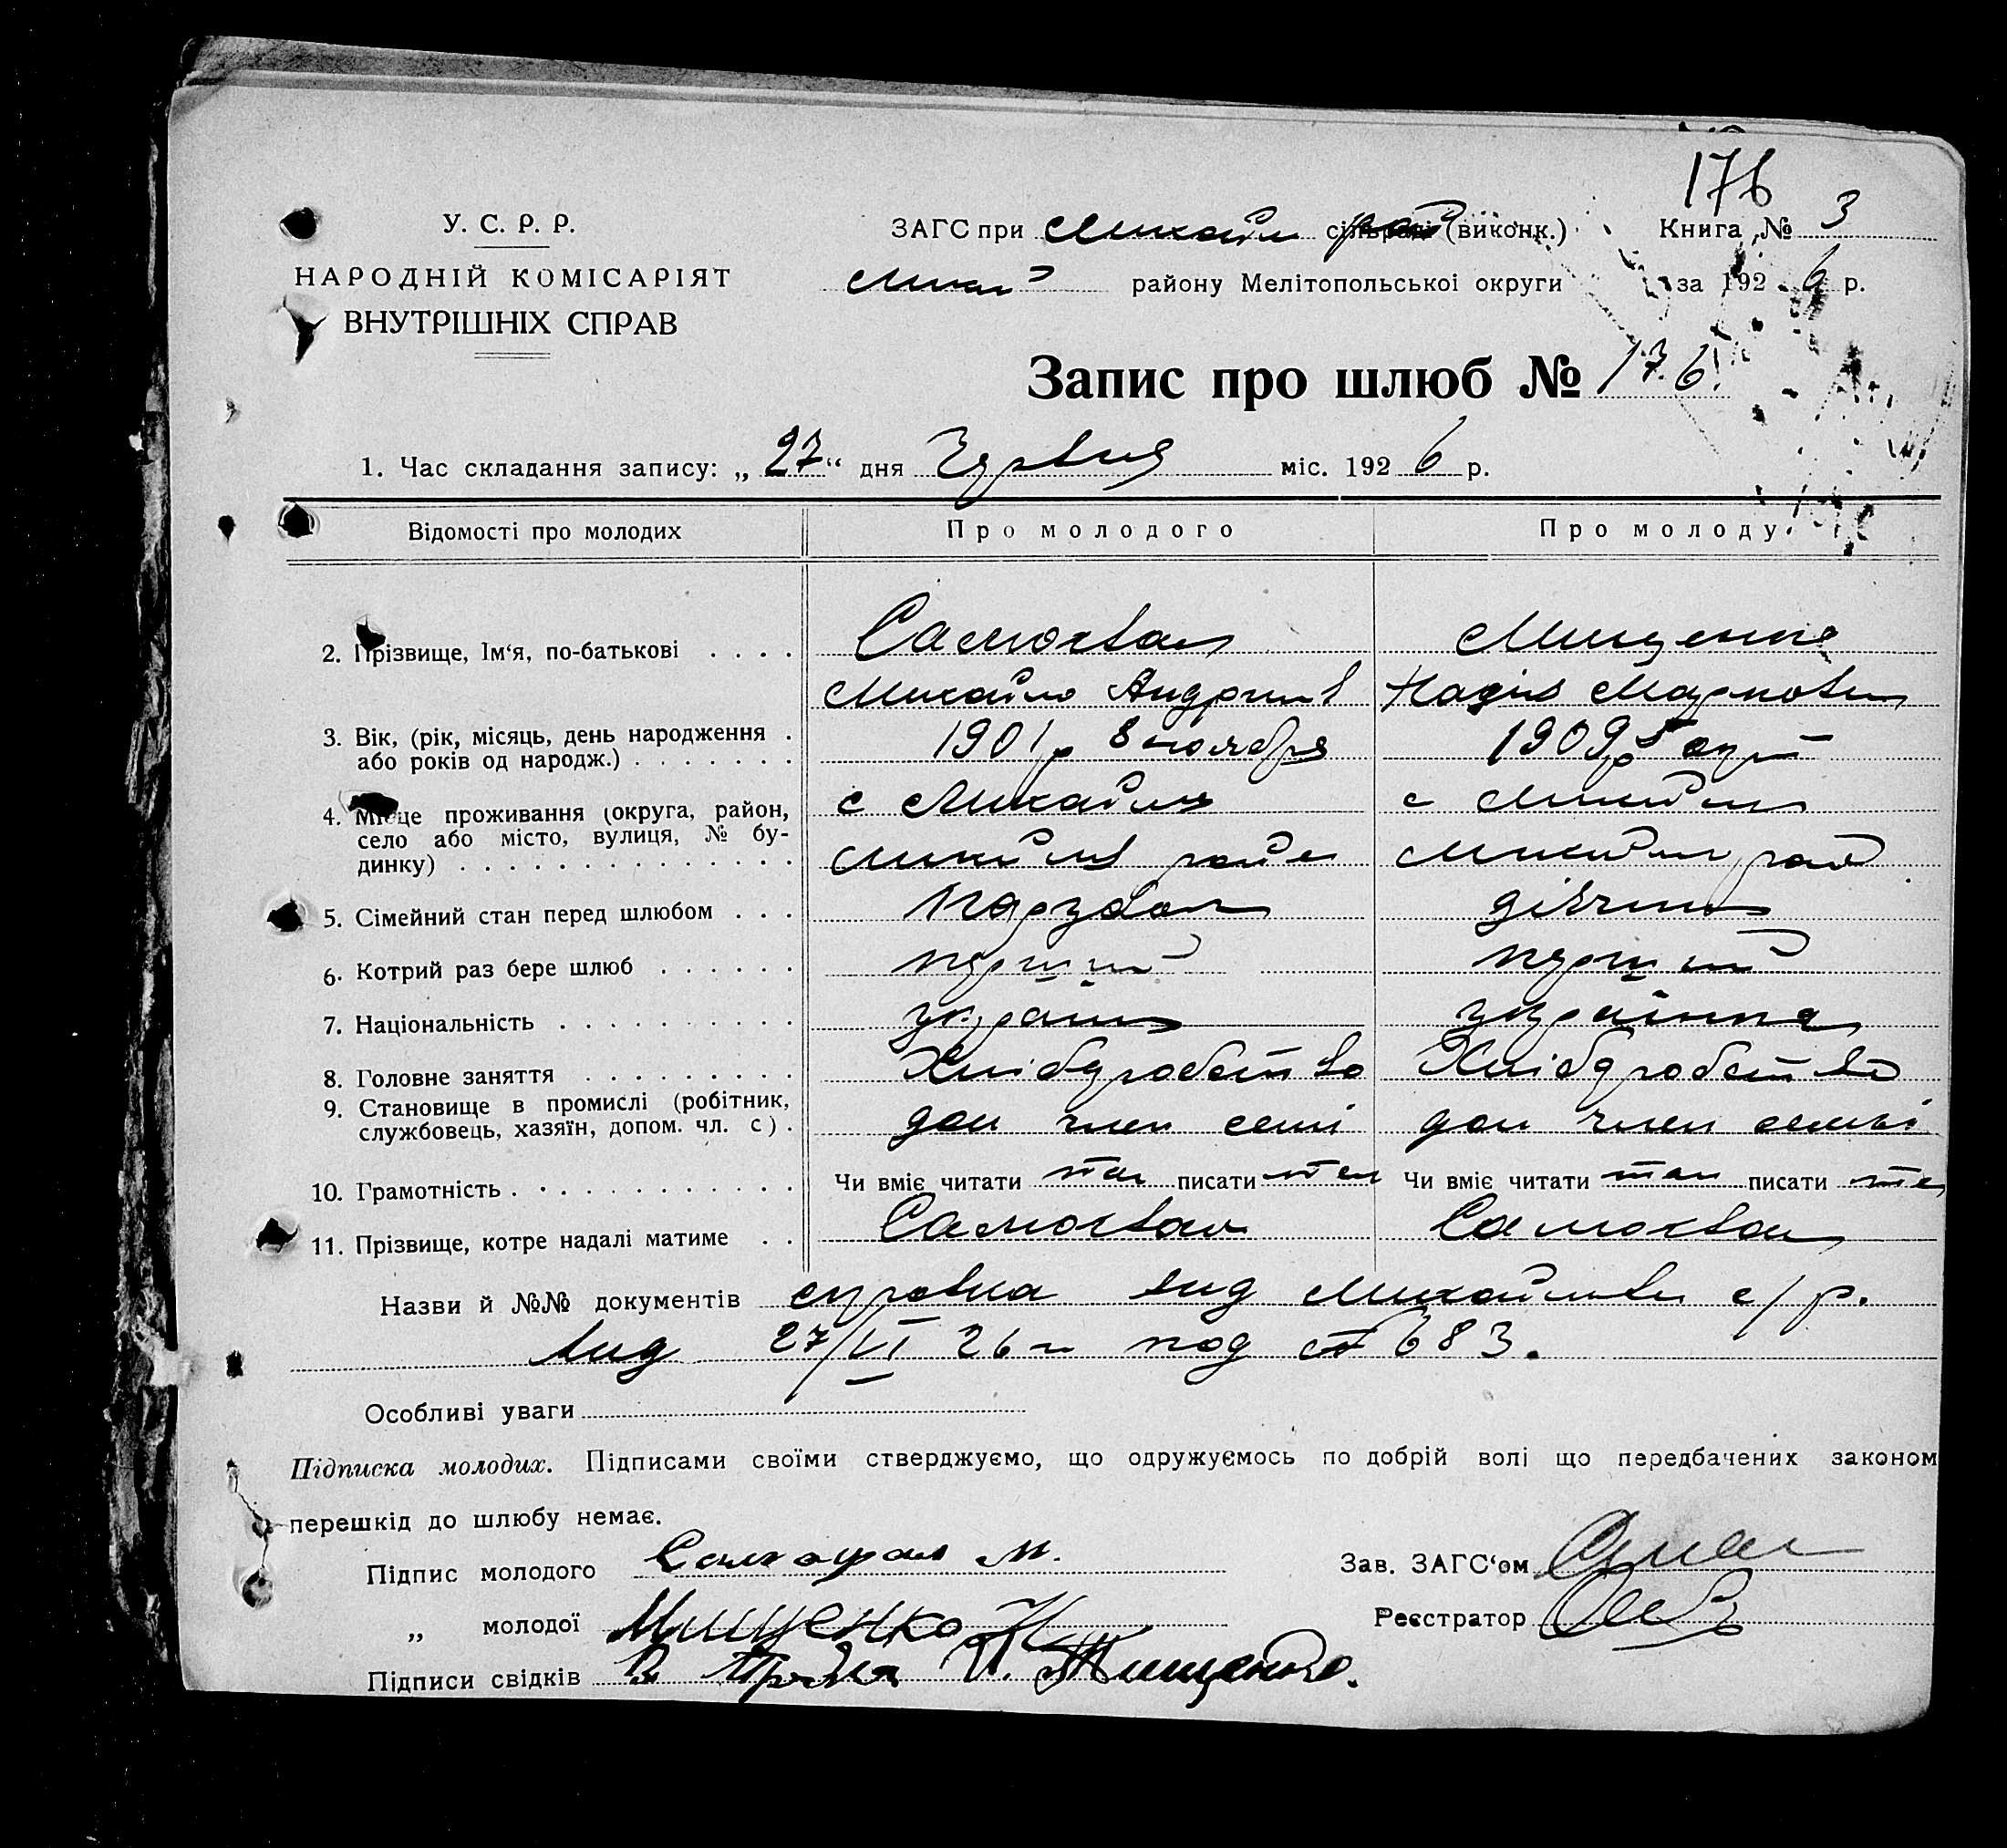 176
У. С. Р. Р.
НАРОДНІЙ КОМІСАРІЯТ
ВНУТРІШНІХ СПРАВ
ЗАГС при Михайл сільраді (виконк.)
Книга № 3
Михай району Мелітопольської округи
за 1926 р.
Запис про шлюб № 176
1. Час складання запису: „27“ дня Червня міс. 1926 р.
Відомості про молодих
Про молодого
Про молоду
2. Прізвище, Ім‘я, по-батькові
Самохвал
Мищенко
Михайло Андриив
Надія Марковн
3. Вік, (рік, місяць, день народження
або років од народж.)
1901р 8 ноября
1909р 5
4. Місце проживання (округа, район,
село або місто, вулиця, № бу-
динку)
с Михайлив
с Михайлив
Михайлив район
Михайлив рай
5. Сімейний стан перед шлюбом
Парубок
дівчина
6. Котрий раз бере шлюб
перший
перший
7. Національність
українець
українка
8. Головне заняття
Хлібдробство
Хлібдробство
9. Становище в промислі (робітник,
службовець, хазяїн, допом. чл. с)
доп член семї
доп член семьї
10. Грамотність
Чи вміє читати так писати так
Чи вміє читати так писати та
11. Прізвище, котре надалі матиме
Самохвал
Самохвал
Назви й №№ документів справка вид Михайливс с/р.
вид 27/VI 26 р под № 683.
Особливі уваги
Підписка молодих. Підписами своїми стверджуємо, що одружуємось по добрій волі що передбачених законом
перешкід до шлюбу немає.
Підпис молодого Самохвал М.
Зав. ЗАГС‘ом
„ молодої Мищенко Н
Реєстратор
Підписи свідків Тищенко.